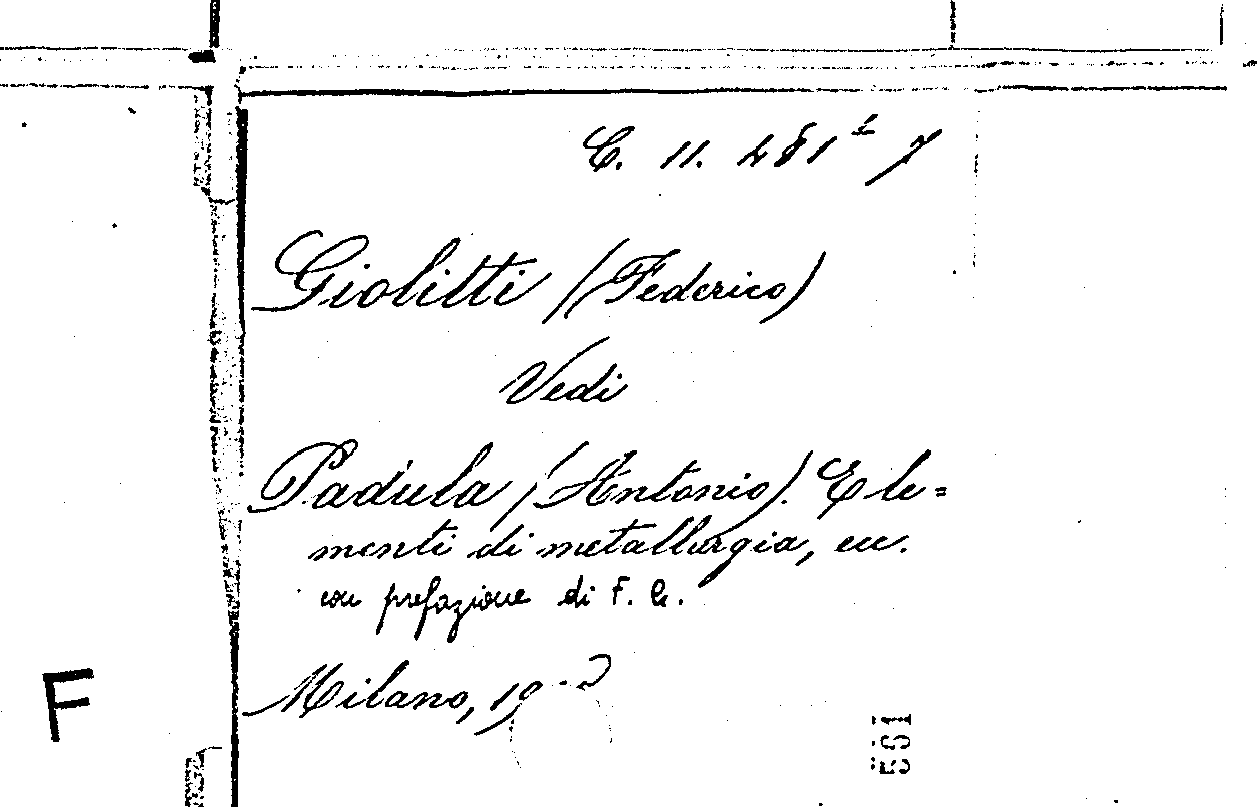 C. 11.
Giolitti (Federico)
Vedi
Padula (Antonio). Ele=
menti di metallurgia, ecc.
con prefazione di F. G.
Milano,
F
561